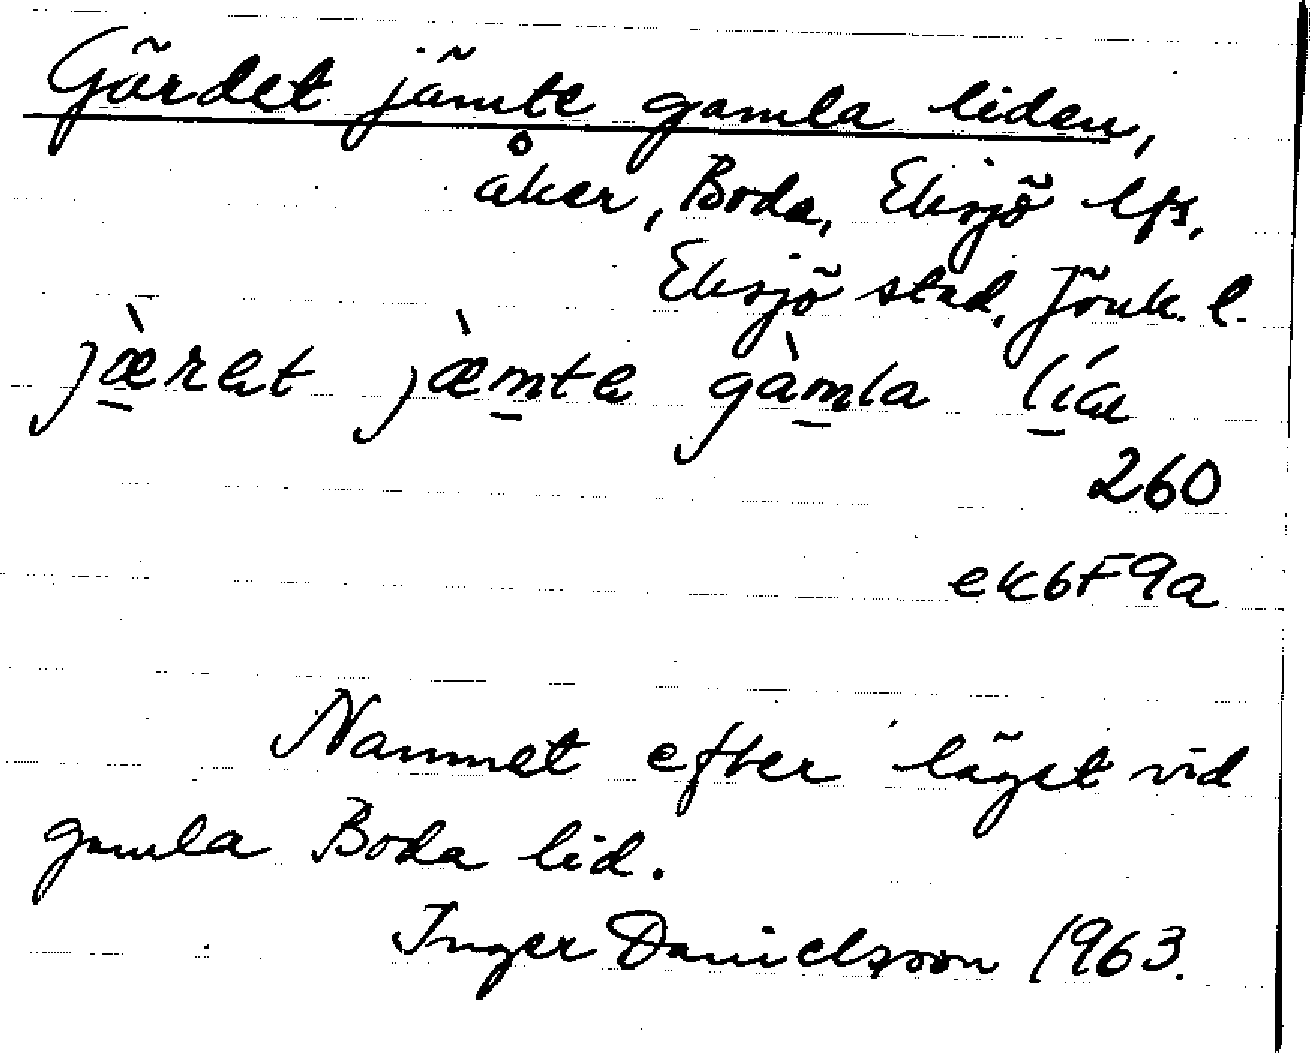 Gärdet jämte gamla liden,
åker, Boda, Eksjö lfs,
Eksjö stad, Jönk. l.
jæ̀ret jæ̀mte gàmla lía
260
ek6F9a
Namnet efter läget vid
gamla Boda lid.
Inger Danielsson 1963.